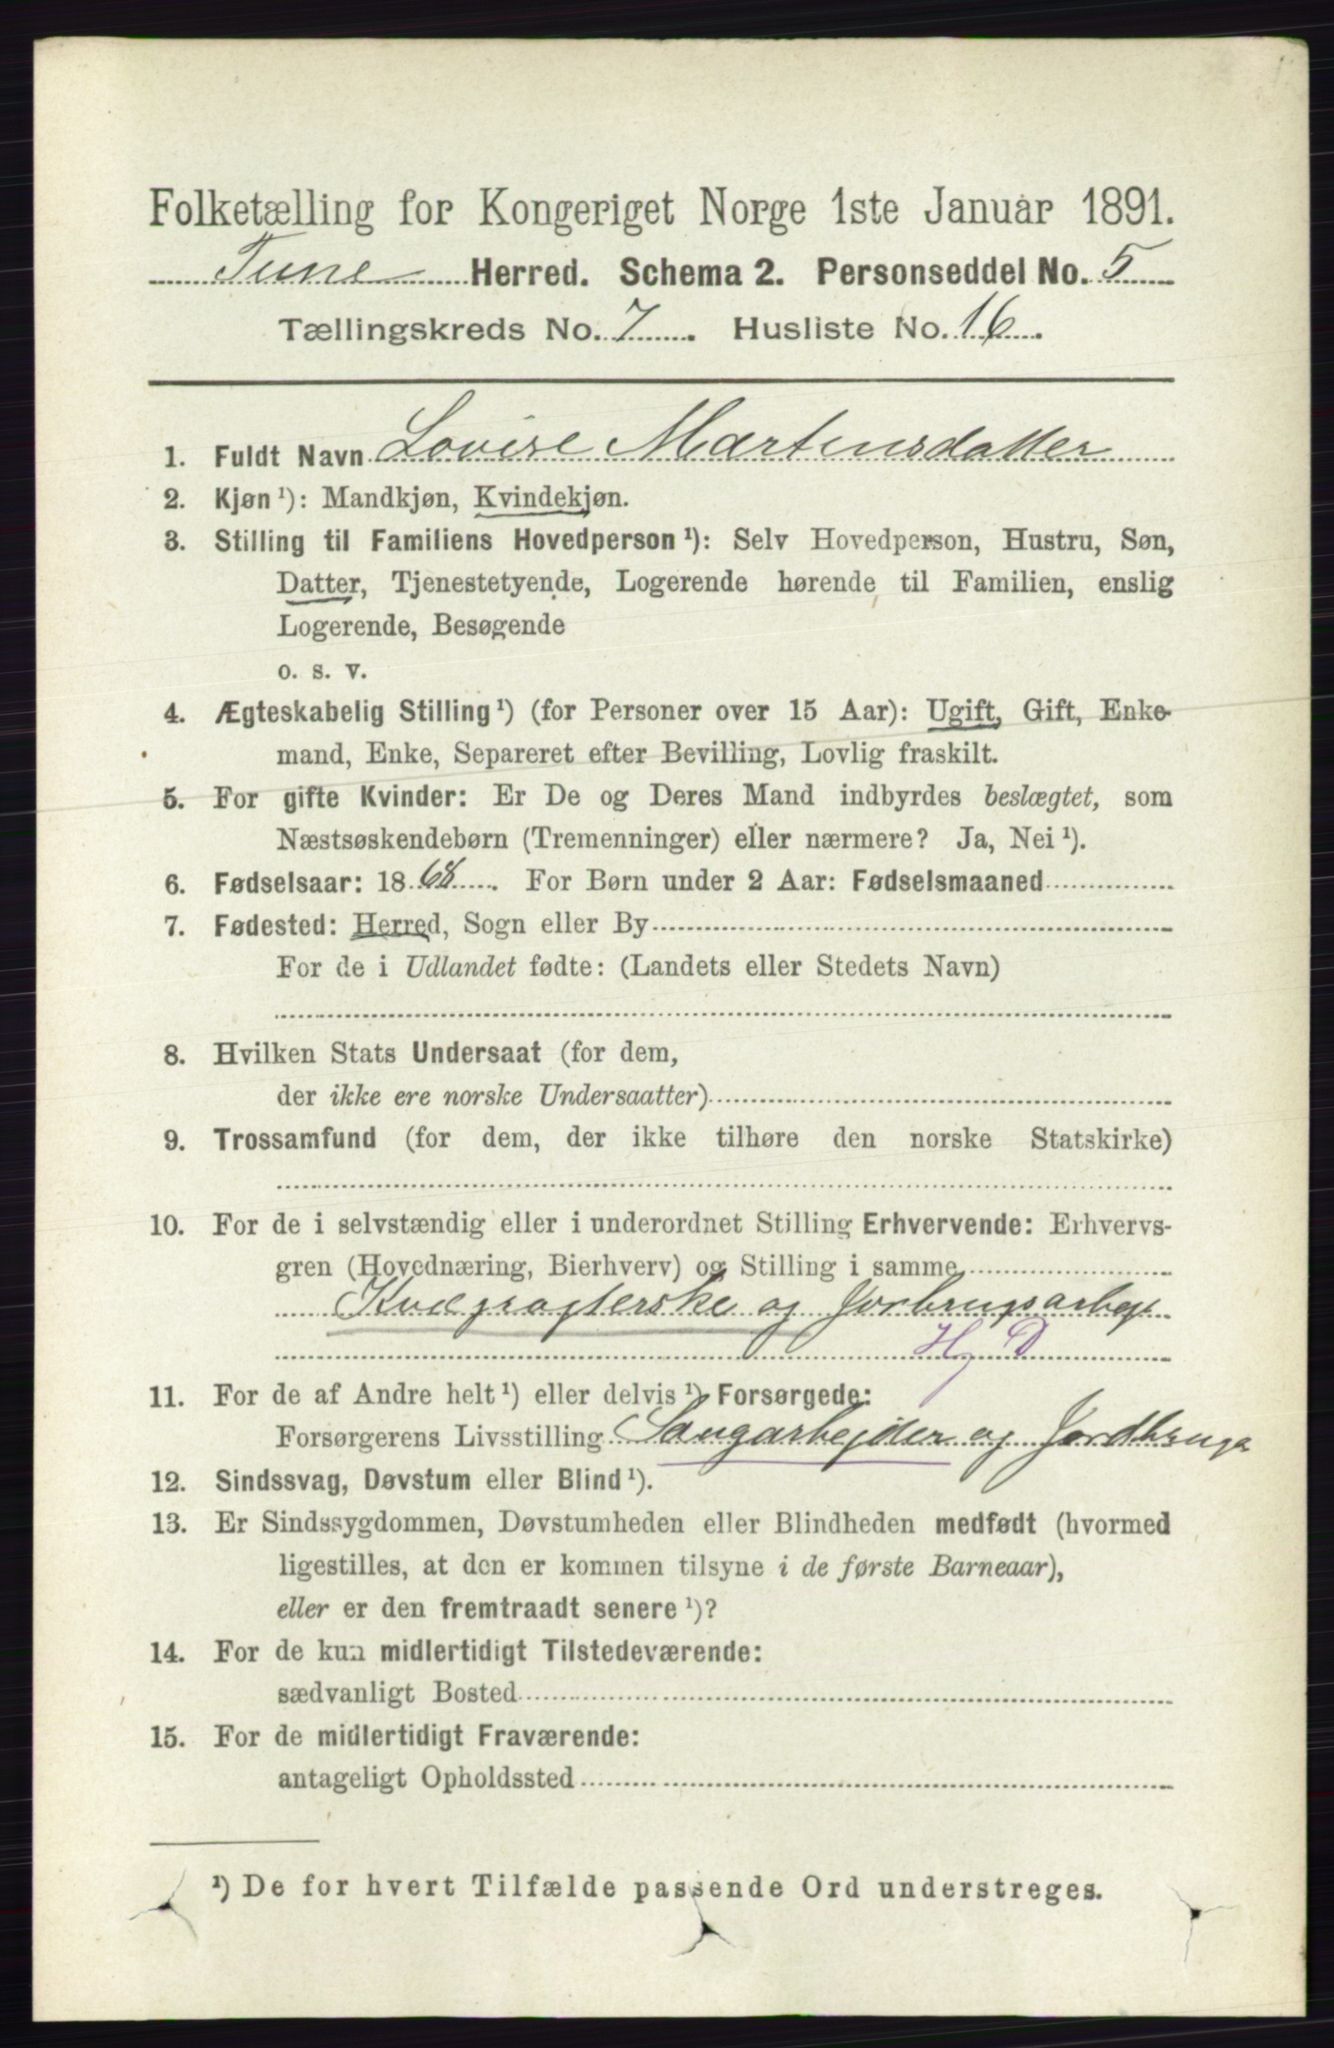 Folketælling for Kongeriget Norge 1ste Januar 1891.
Tune Herred. Schema 2. Personseddel No. 5
Tællingskreds No. 7. Husliste No. 16.
1. Fuldt Navn Lovise Martinsdatter
2. Kjøn ¹): Mandkjøn, Kvindekjøn.
3. Stilling til Familiens Hovedperson ¹): Selv Hovedperson, Hustru, Søn,
Datter, Tjenestetyende, Logerende hørende til Familien, enslig
Logerende, Besøgende
o. s. v.
4. Ægteskabelig Stilling ¹) (for Personer over 15 Aar): Ugift, Gift, Enke-
mand, Enke, Separeret efter Bevilling, Lovlig fraskilt.
5. For gifte Kvinder: Er De og Deres Mand indbyrdes beslægtet, som
Næstsøskendebørn (Tremenninger) eller nærmere? Ja, Nei ¹).
6. Fødselsaar: 1868. For Børn under 2 Aar: Fødselsmaaned
7. Fødested: Herred, Sogn eller By
For de i Udlandet fødte: (Landets eller Stedets Navn)
8. Hvilken Stats Undersaat (for dem,
der ikke ere norske Undersaatter)
9. Trossamfund (for dem, der ikke tilhøre den norske Statskirke)
10. For de i selvstændig eller i underordnet Stilling Erhvervende: Erhvervs-
gren (Hovednæring, Bierhverv) og Stilling i samme
Kvægrøgterske og Jorbrugsarbej
H D
11. For de af Andre helt ¹) eller delvis ¹) Forsørgede:
Forsørgerens Livsstilling Saugarbejder og Jordbruger
12. Sindssvag, Døvstum eller Blind ¹).
13. Er Sindssygdommen, Døvstumheden eller Blindheden medfødt (hvormed
ligestilles, at den er kommen tilsyne i de første Barneaar),
eller er den fremtraadt senere ¹)?
14. For de kun midlertidigt Tilstedeværende:
sædvanligt Bosted
15. For de midlertidigt Fraværende:
antageligt Opholdssted
¹) De for hvert Tilfælde passende Ord understreges.